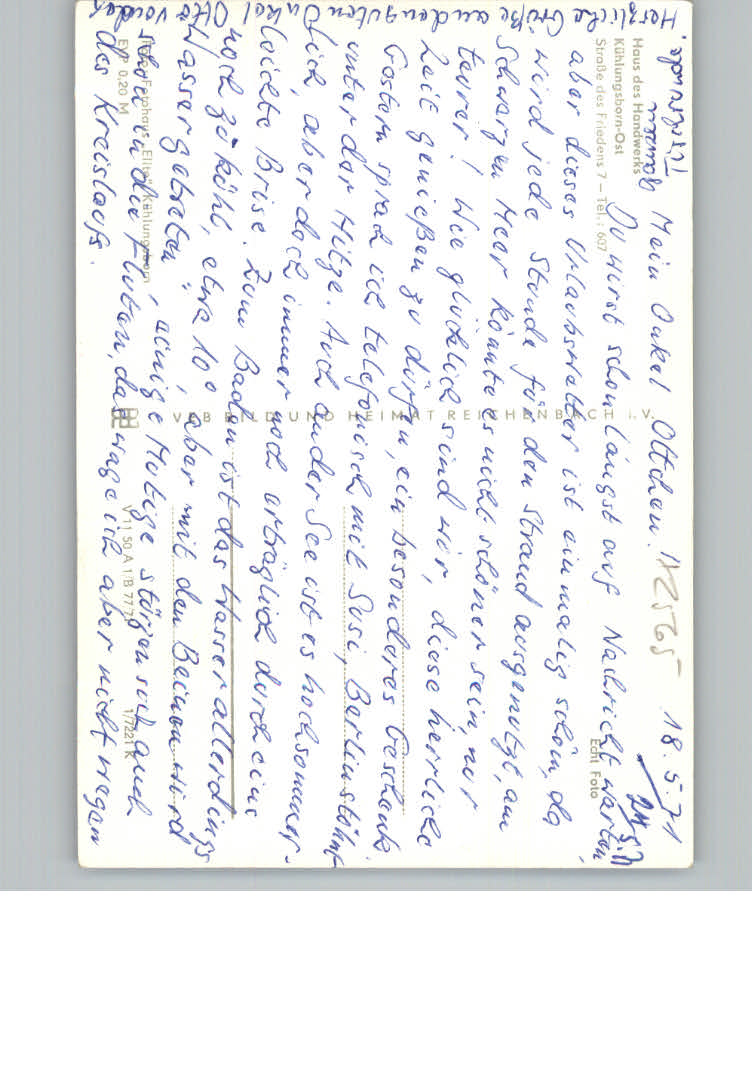 Haus des Handwerks
Kühlungsborn-Ost
Straße des Friedens 7 – Tel.: 607
18.5.71
Mein Onkel Ottchen!
Du wirst schon längst auf Nachricht warten,
aber dieses Urlaubswetter ist einmalig schön, da
wird jede Stunde für den Strand ausgenutzt, am
Schwarzen Meer könnte es nicht schöner sein, nur
teurer! Wie glücklich sind wir, diese herrliche
Zeit genießen zu dürfen, ein besonderes Geschenk.
Gestern sprach ich telefonisch mit Susi, Berlin stöhnt
unter der Hitze. Auch an der See ist es hochsommer-
lich, aber doch immer noch erträglich durch eine
leichte Brise. Zum Baden ist das Wasser allerdings
noch zu kühl, etwa 10°, aber mit den Beinen wird
"Wasser getreten", einige Mutige stürzen sich auch
schon in die Fluten, das wage ich aber nicht wegen
des Kreislaufs.
Herzliche Grüße an den guten Onkel Otto von der
Echt Foto
VEB BILD UND HEIMAT REICHENBACH i. V.
Foto: Fotohaus „Elite" Kühlungsborn
EVP 0,20 M
V 11 50 A 1/B 777
1/7221 K